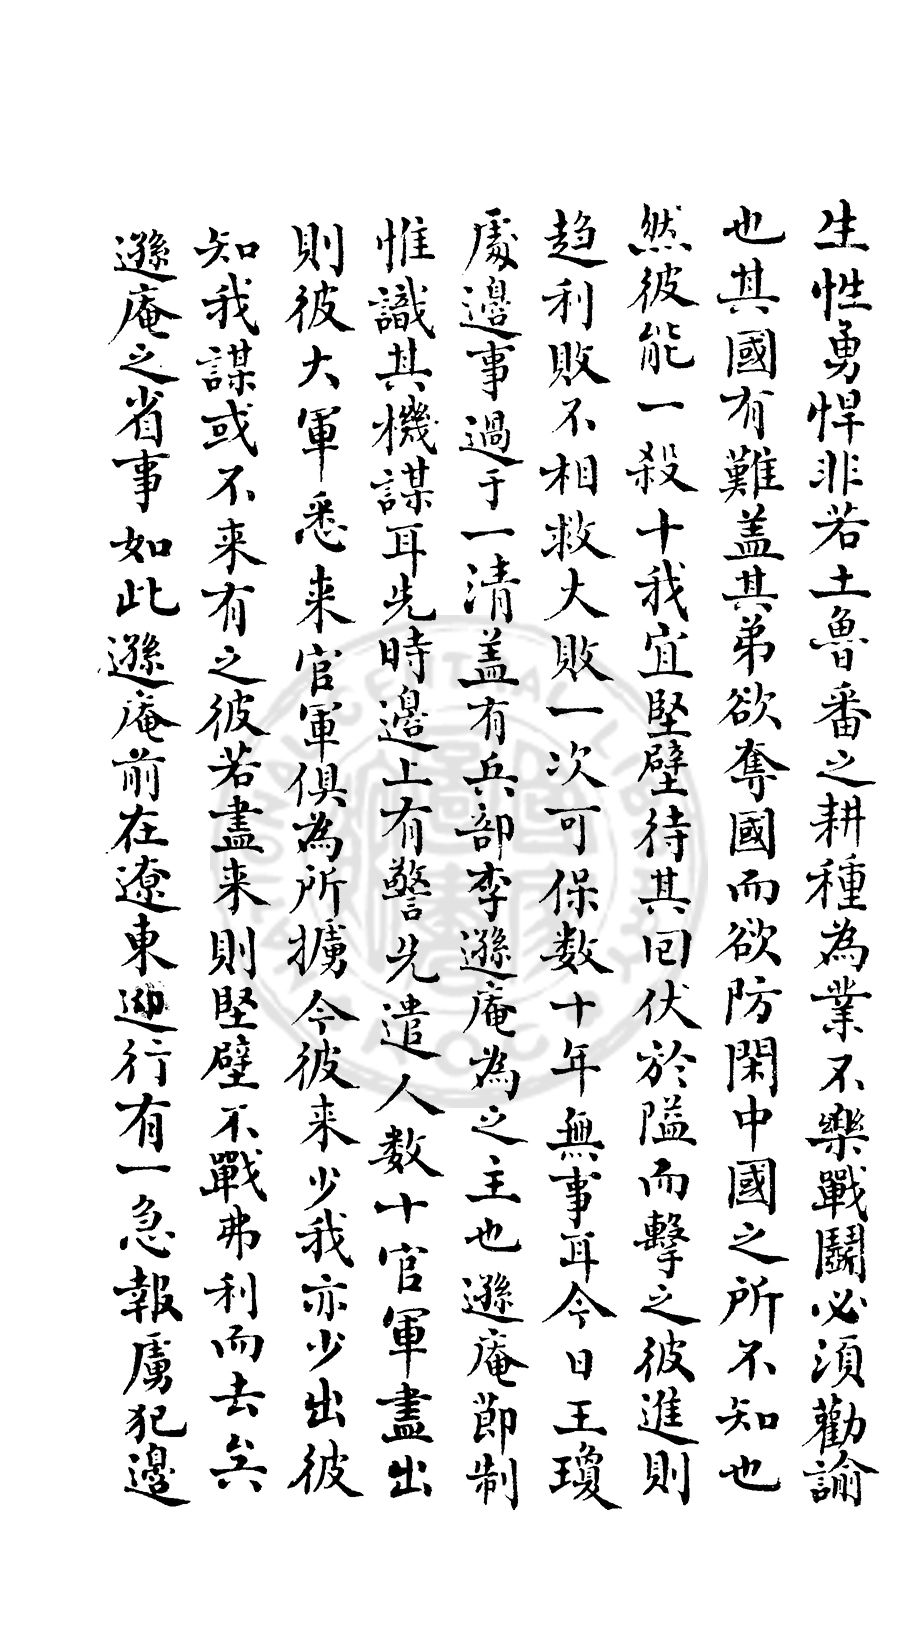 生性勇悍非若土魯番之耕種為業不樂戰鬭必須勸諭
也其國有難盖其弟欲奪國而欲防閑中國之所不知也
然彼能一殺十我宜堅壁待其囘伏於隘而擊之彼進則
趋利敗不相救大敗一次可保数十年無事耳今日王瓊
處邊事過于一清盖有兵部李遜庵為之主也遜庵節制
惟識其機謀耳先時邊上有警先遣人数十官軍盡出
則彼大軍悉来官軍俱為所擄今彼来少我亦少出彼
知我謀或不来有之彼若盡来則堅壁不戰弗利而去矣
遜庵之省事如此遜庵前在遼東廵行有一急報虜犯邊
NATIONAL CENTRAL LIBRARY